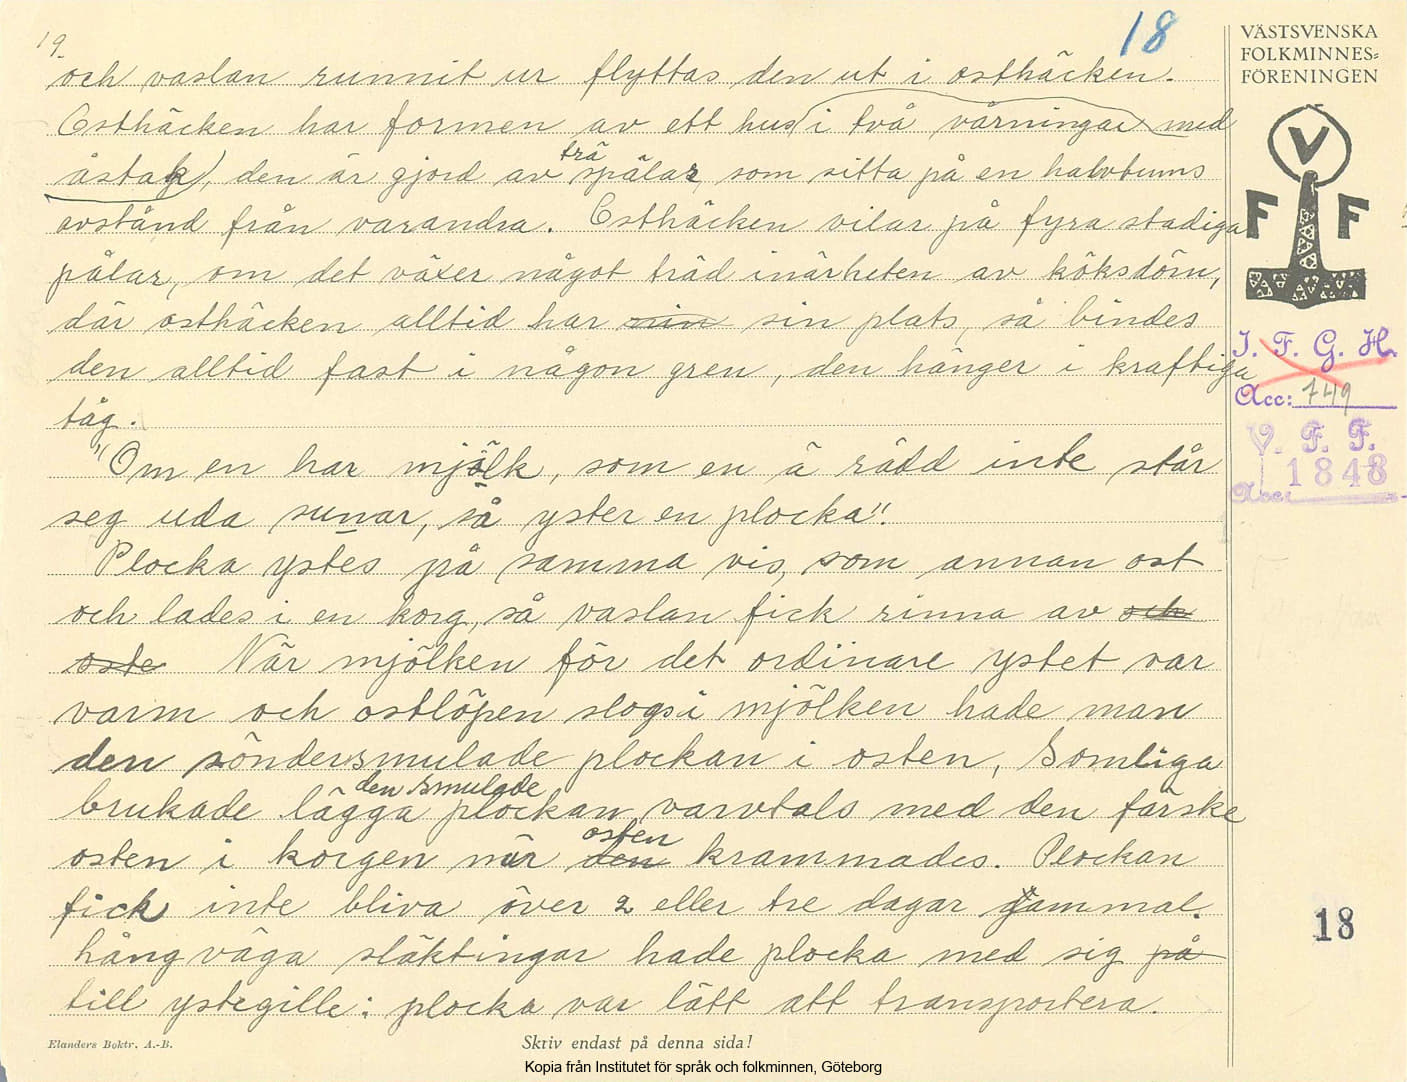 19.
18
och vaslan runnit ur flyttas den ut i osthäcken.
Osthäcken har formen av ett hus (i två vårningar med
åstak), den är gjord av träspälar, som sitta på en halvtums
avstånd från varandra. Osthäcken vilar på fyra stadiga
pålar, om det växer något träd inärheten av köksdörn,
där osthäcken alltid har sin sin plats, så bindes
den alltid fast i någon gren, den hänger i kraftiga
tåg.
"Om en har mjölk, som en ä rädd inte står
seg uda sunar, så yster en plocka".
Plocka ystes på samma vis, som annan ost
och lades i en korg, så vaslan fick rinna av och
oste När mjölken för det ordinare ystet var
varm och ostlöpen slogs i mjölken hade man
den söndersmulade plockan i osten, Somliga
brukade lägga den smulade plockan varvtals med den färske
osten i korgen när den osten krammades. Plockan
fick inte bliva över 2 eller tre dagar gammal.
hångväga släktingar hade plocka med sig på
till ystegille: plocka var lätt att transportera.
VÄSTSVENSKA
FOLKMINNES=
FÖRENINGEN
V
F F
I. F. G. H.
Acc: 749
V. F. F.
Acc: 1848
18
Elanders Boktr. A.-B.
Skriv endast på denna sida!
Kopia från Institutet för språk och folkminnen, Göteborg